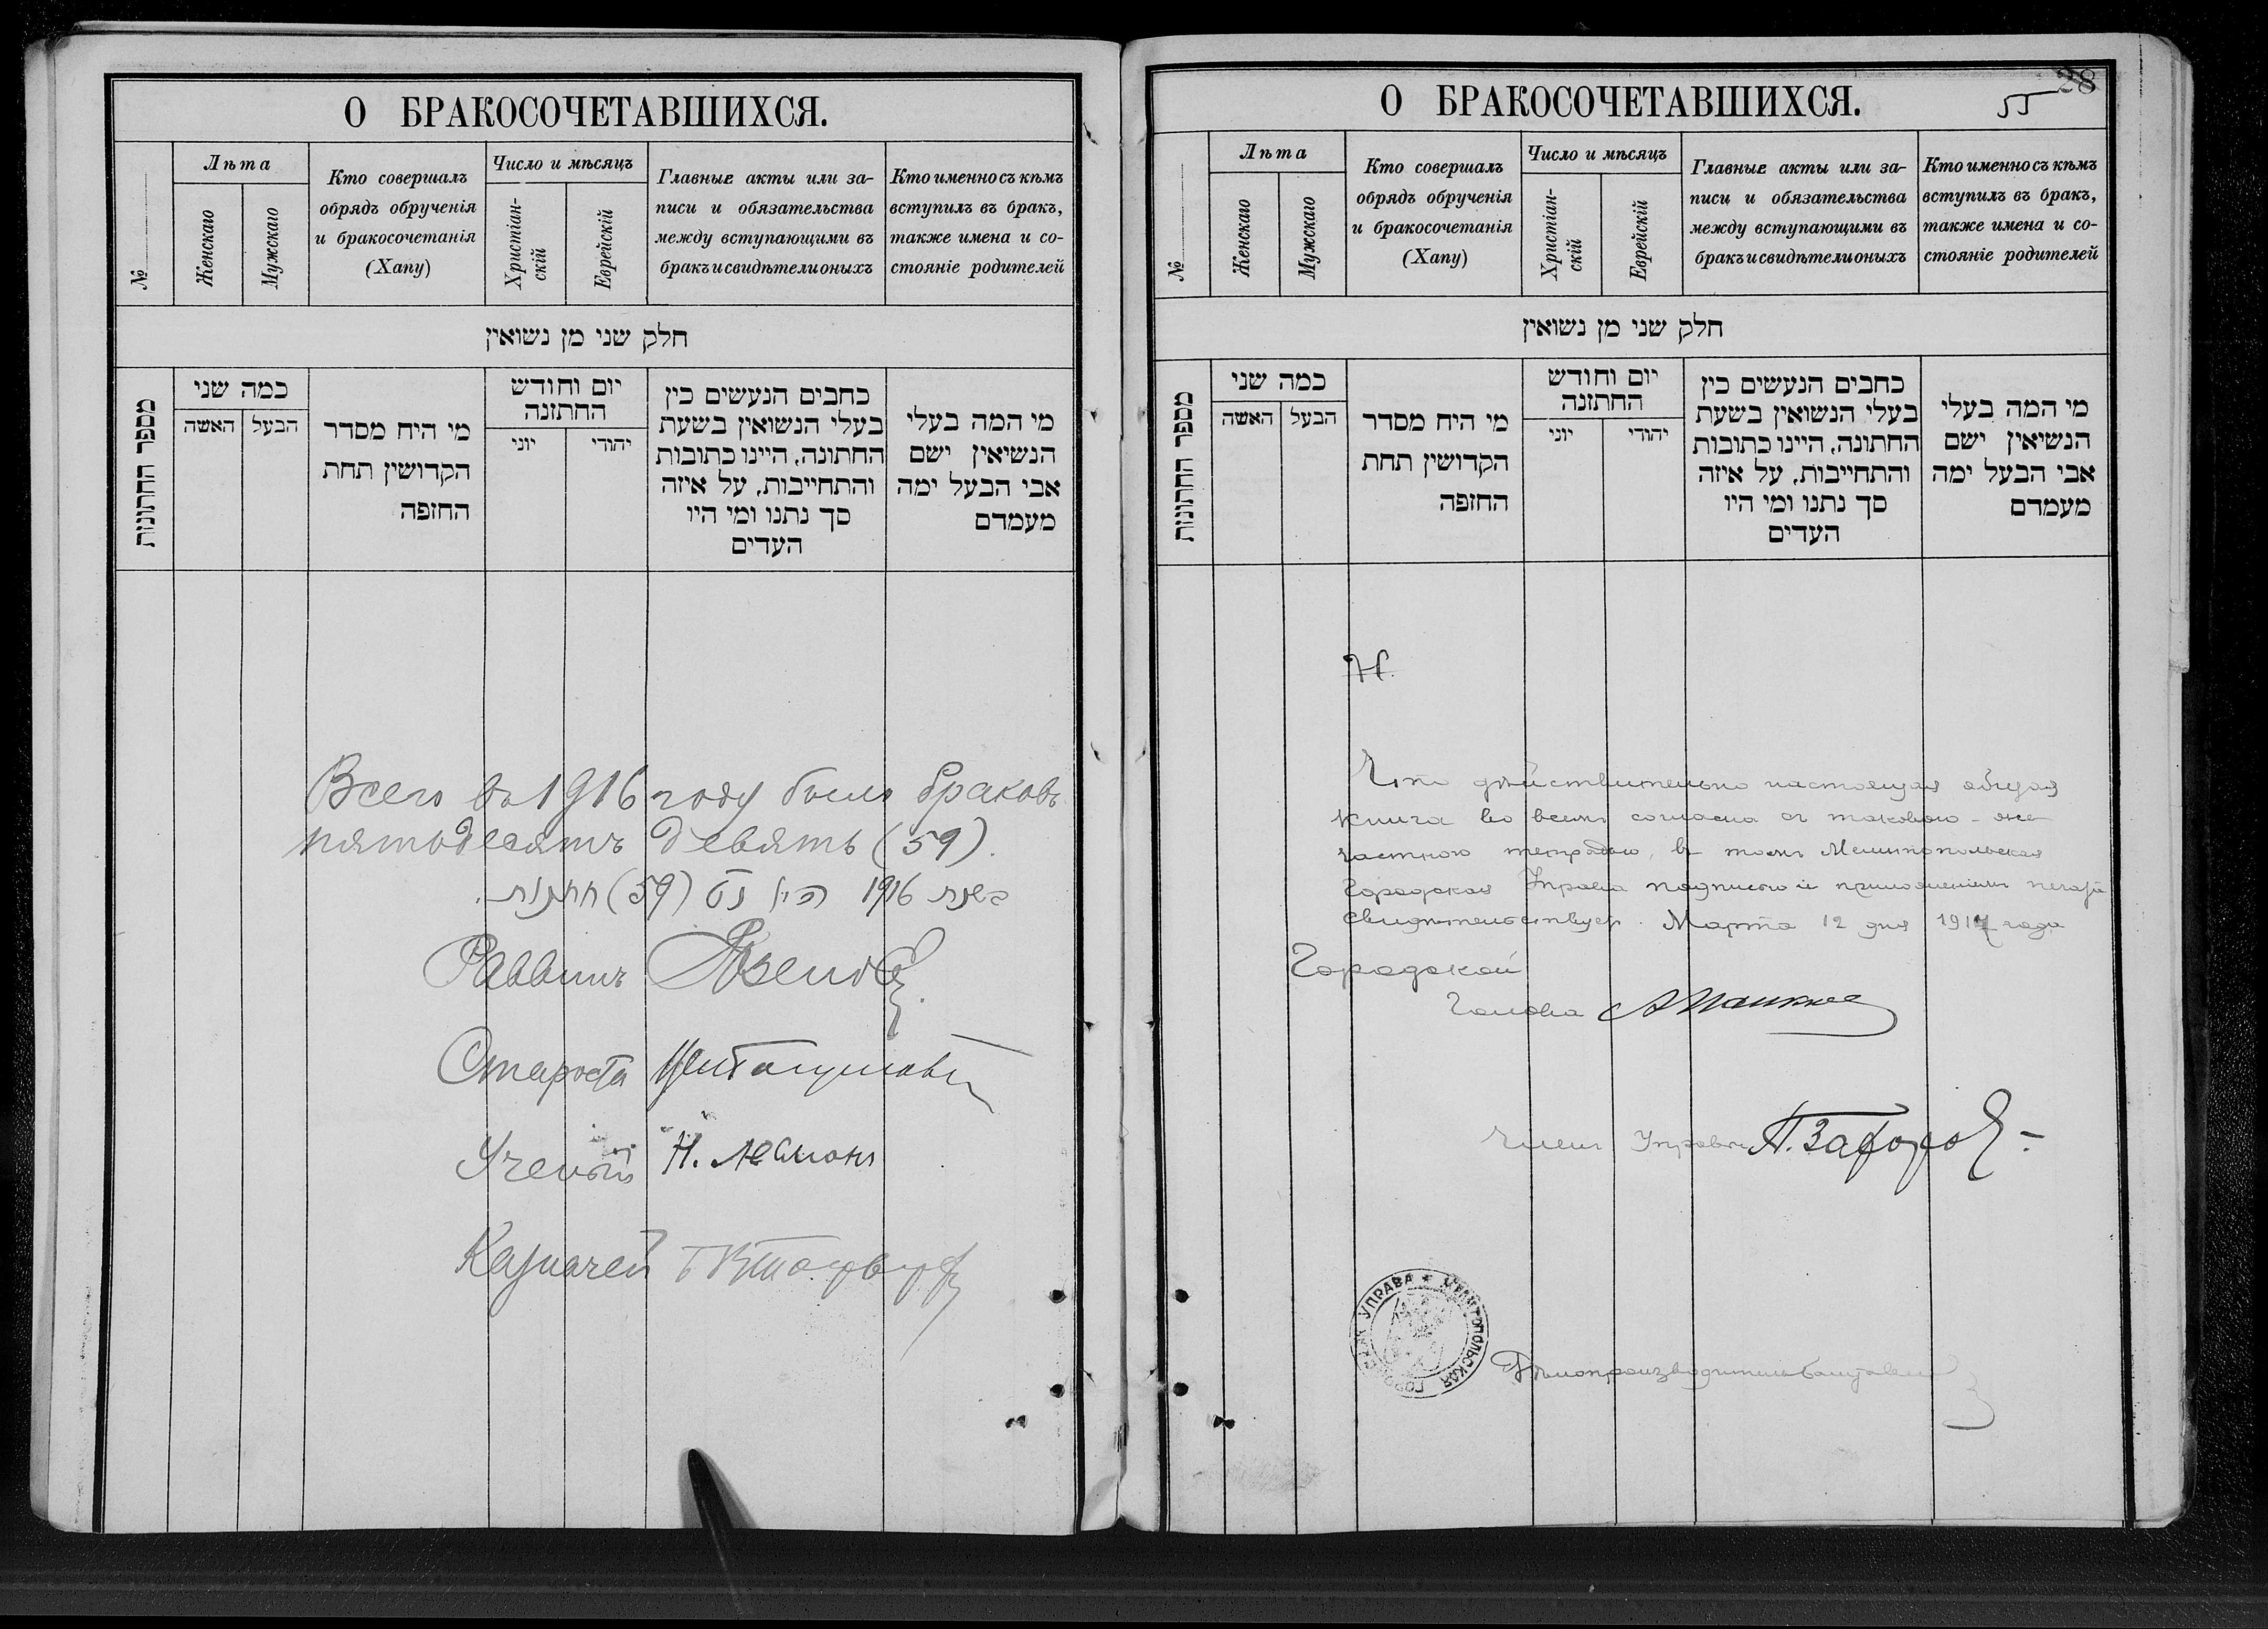 О БРАКОСОЧЕТАВШИХСЯ.
№
Лѣта
Женскаго
Мужскаго
Кто совершалъ
обрядъ обрученія
и бракосочетанія
(Хапу)
Число и мѣсяцъ
Христіан-
скій
Еврейскій
Главные акты или за-
писи и обязательства
между вступающими въ
бракъ и свидѣтели оныхъ
Кто именно съ кѣмъ
вступилъ въ бракъ,
также имена и со-
стояніе родителей
חלק שני מן נשואין
מספר החתונות
כמה שני
האשה
הבעל
מי היח מסדר
הקדושין תחת
החופה
יום וחודש
החתונה
יוני
יהודי
כחבים הנעשים כין
בעלי הנשואין בשעת
החתונה, היינו כתובות
והתחייבות, על איזה
סך נתנו ומי היו
העדים
מי המה בעלי
הנשיאין ישם
אבי הבעל ימה
מעמדם
Всего въ 1916 году было браковъ
пятьдесятъ девять (59).
בשנת 1916 היו נט (59) חתונות.
Раввинъ
Староста
Ученый Н.
Казначей
28
55
О БРАКОСОЧЕТАВШИХСЯ.
№
Лѣта
Женскаго
Мужскаго
Кто совершалъ
обрядъ обрученія
и бракосочетанія
(Хапу)
Число и мѣсяцъ
Христіан-
скій
Еврейскій
Главные акты или за-
писи и обязательства
между вступающими въ
бракъ и свидѣтели оныхъ
Кто именно съ кѣмъ
вступилъ въ бракъ,
также имена и со-
стояніе родителей
חלק שני מן נשואין
מספר החתונות
כמה שני
האשה
הבעל
מי היח מסדר
הקדושין תחת
החופה
יום וחודש
החתונה
יוני
יהודי
כחבים הנעשים כין
בעלי הנשואין בשעת
החתונה, היינו כתובות
והתחייבות, על איזה
סך נתנו ומי היו
העדים
מי המה בעלי
הנשיאין ישם
אבי הבעל ימה
מעמדם
Что дѣйствительно настоящая общая
книга во всемъ согласна съ таковою-же
частною тетрадью, въ томъ Мелитопольская
Городская Управа подписью и приложеніемъ печати
свидѣтельствуетъ. Марта 12 дня 1917 года
Городской
Голова
Членъ Управы П.
МЕЛИТОПОЛЬСКАЯ ГОРОДСКАЯ УПРАВА
Дѣлопроизводитель